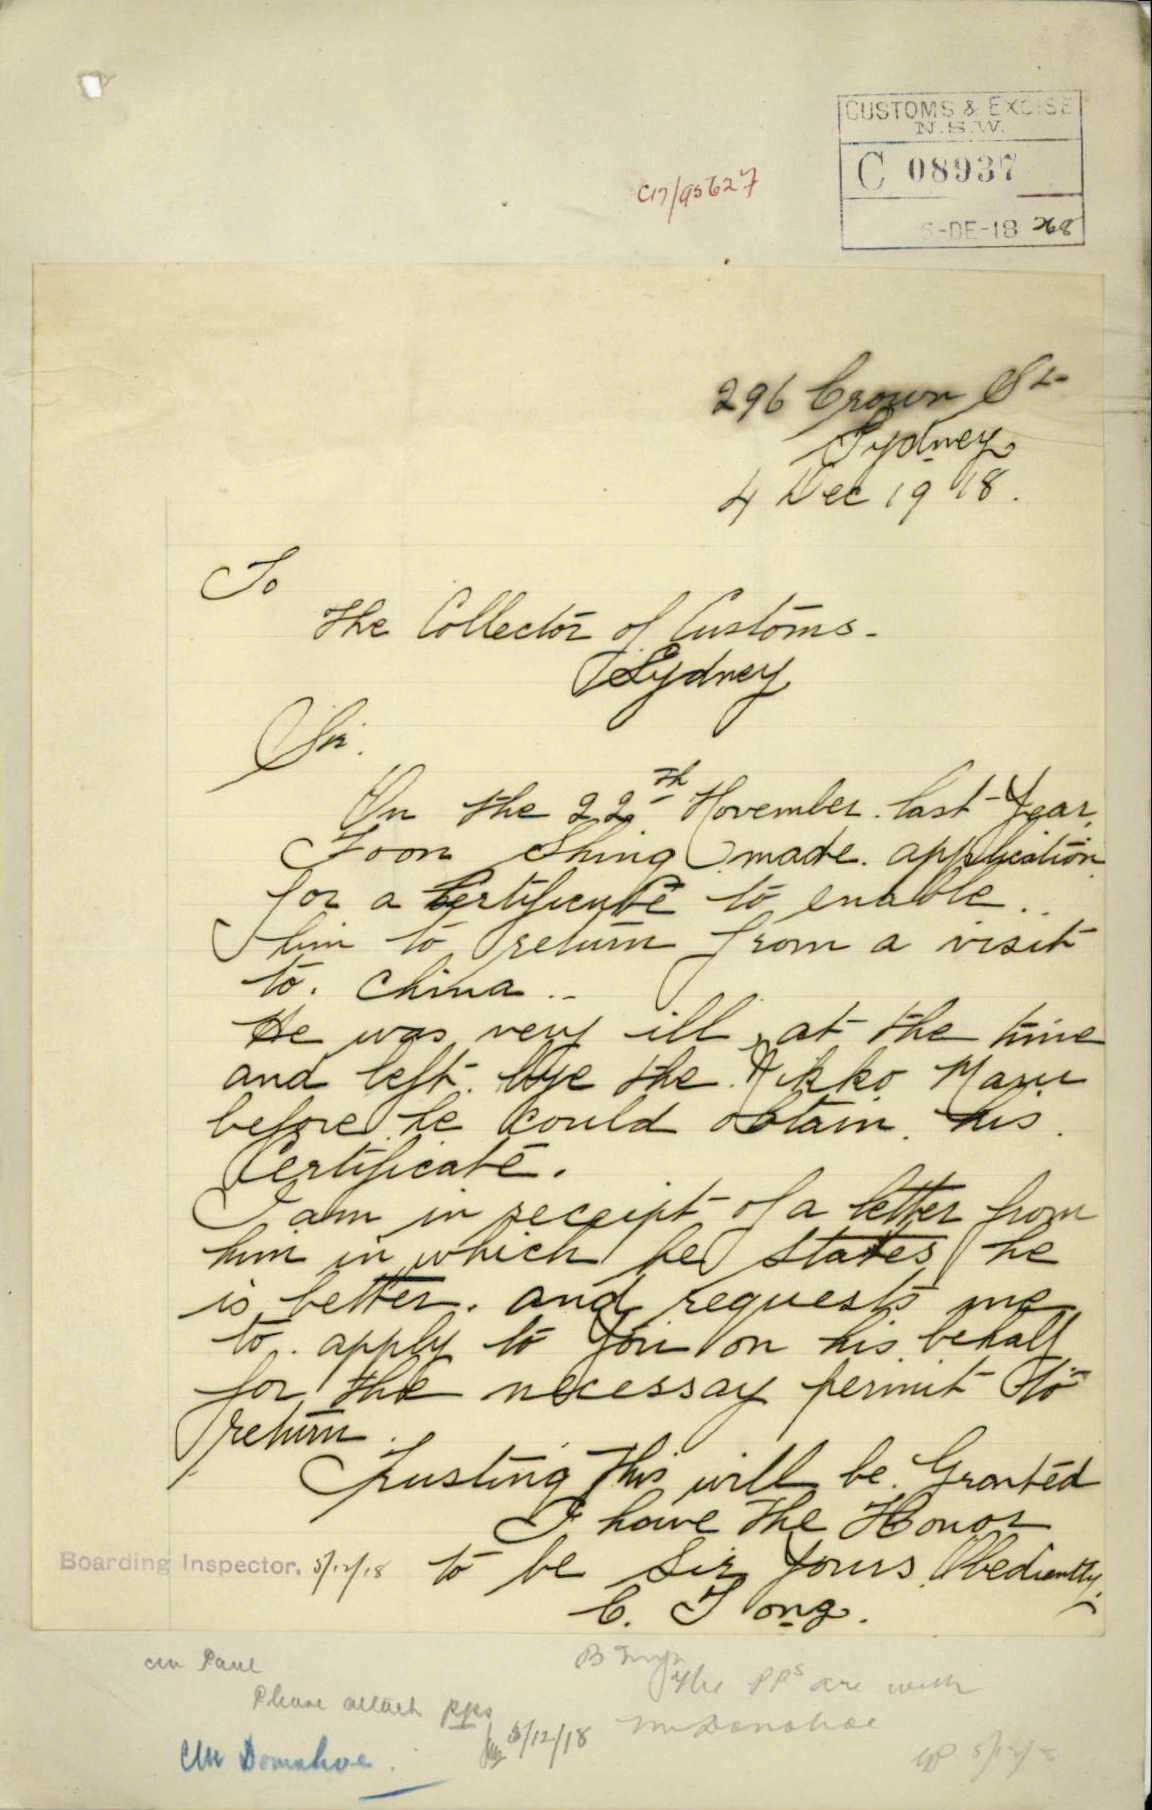 CUSTOMS & EXCISE
N.S.W.
C 08937
5-DE-18 268
C17/95627
296 Crown St
Sydney
4 Dec 1918.
To
The Collector of Customs.
Sydney
Sir.
On the 22th November last Year
Foon Shing made application
for a Certificate to enable
him to return from a visit
to. China..
He was very ill, at the time
and left bye the Nikko Maru
before he could obtain his
Certificate.
I am in receipt of a letter from
him in which he states he
is better. and requests me
to apply to You on his behalf
for the necessay permit to
return.
Trusting this will be Granted
I have the Honor
to be Sir Yours Obediently.
C. Tong.
Boarding Inspector. 5/12/18
Mr Paul
Please attach pps
5/12/18
Mr Donohoe.
B Insp
The PPs are with
Mr Donohoe
5/12/18